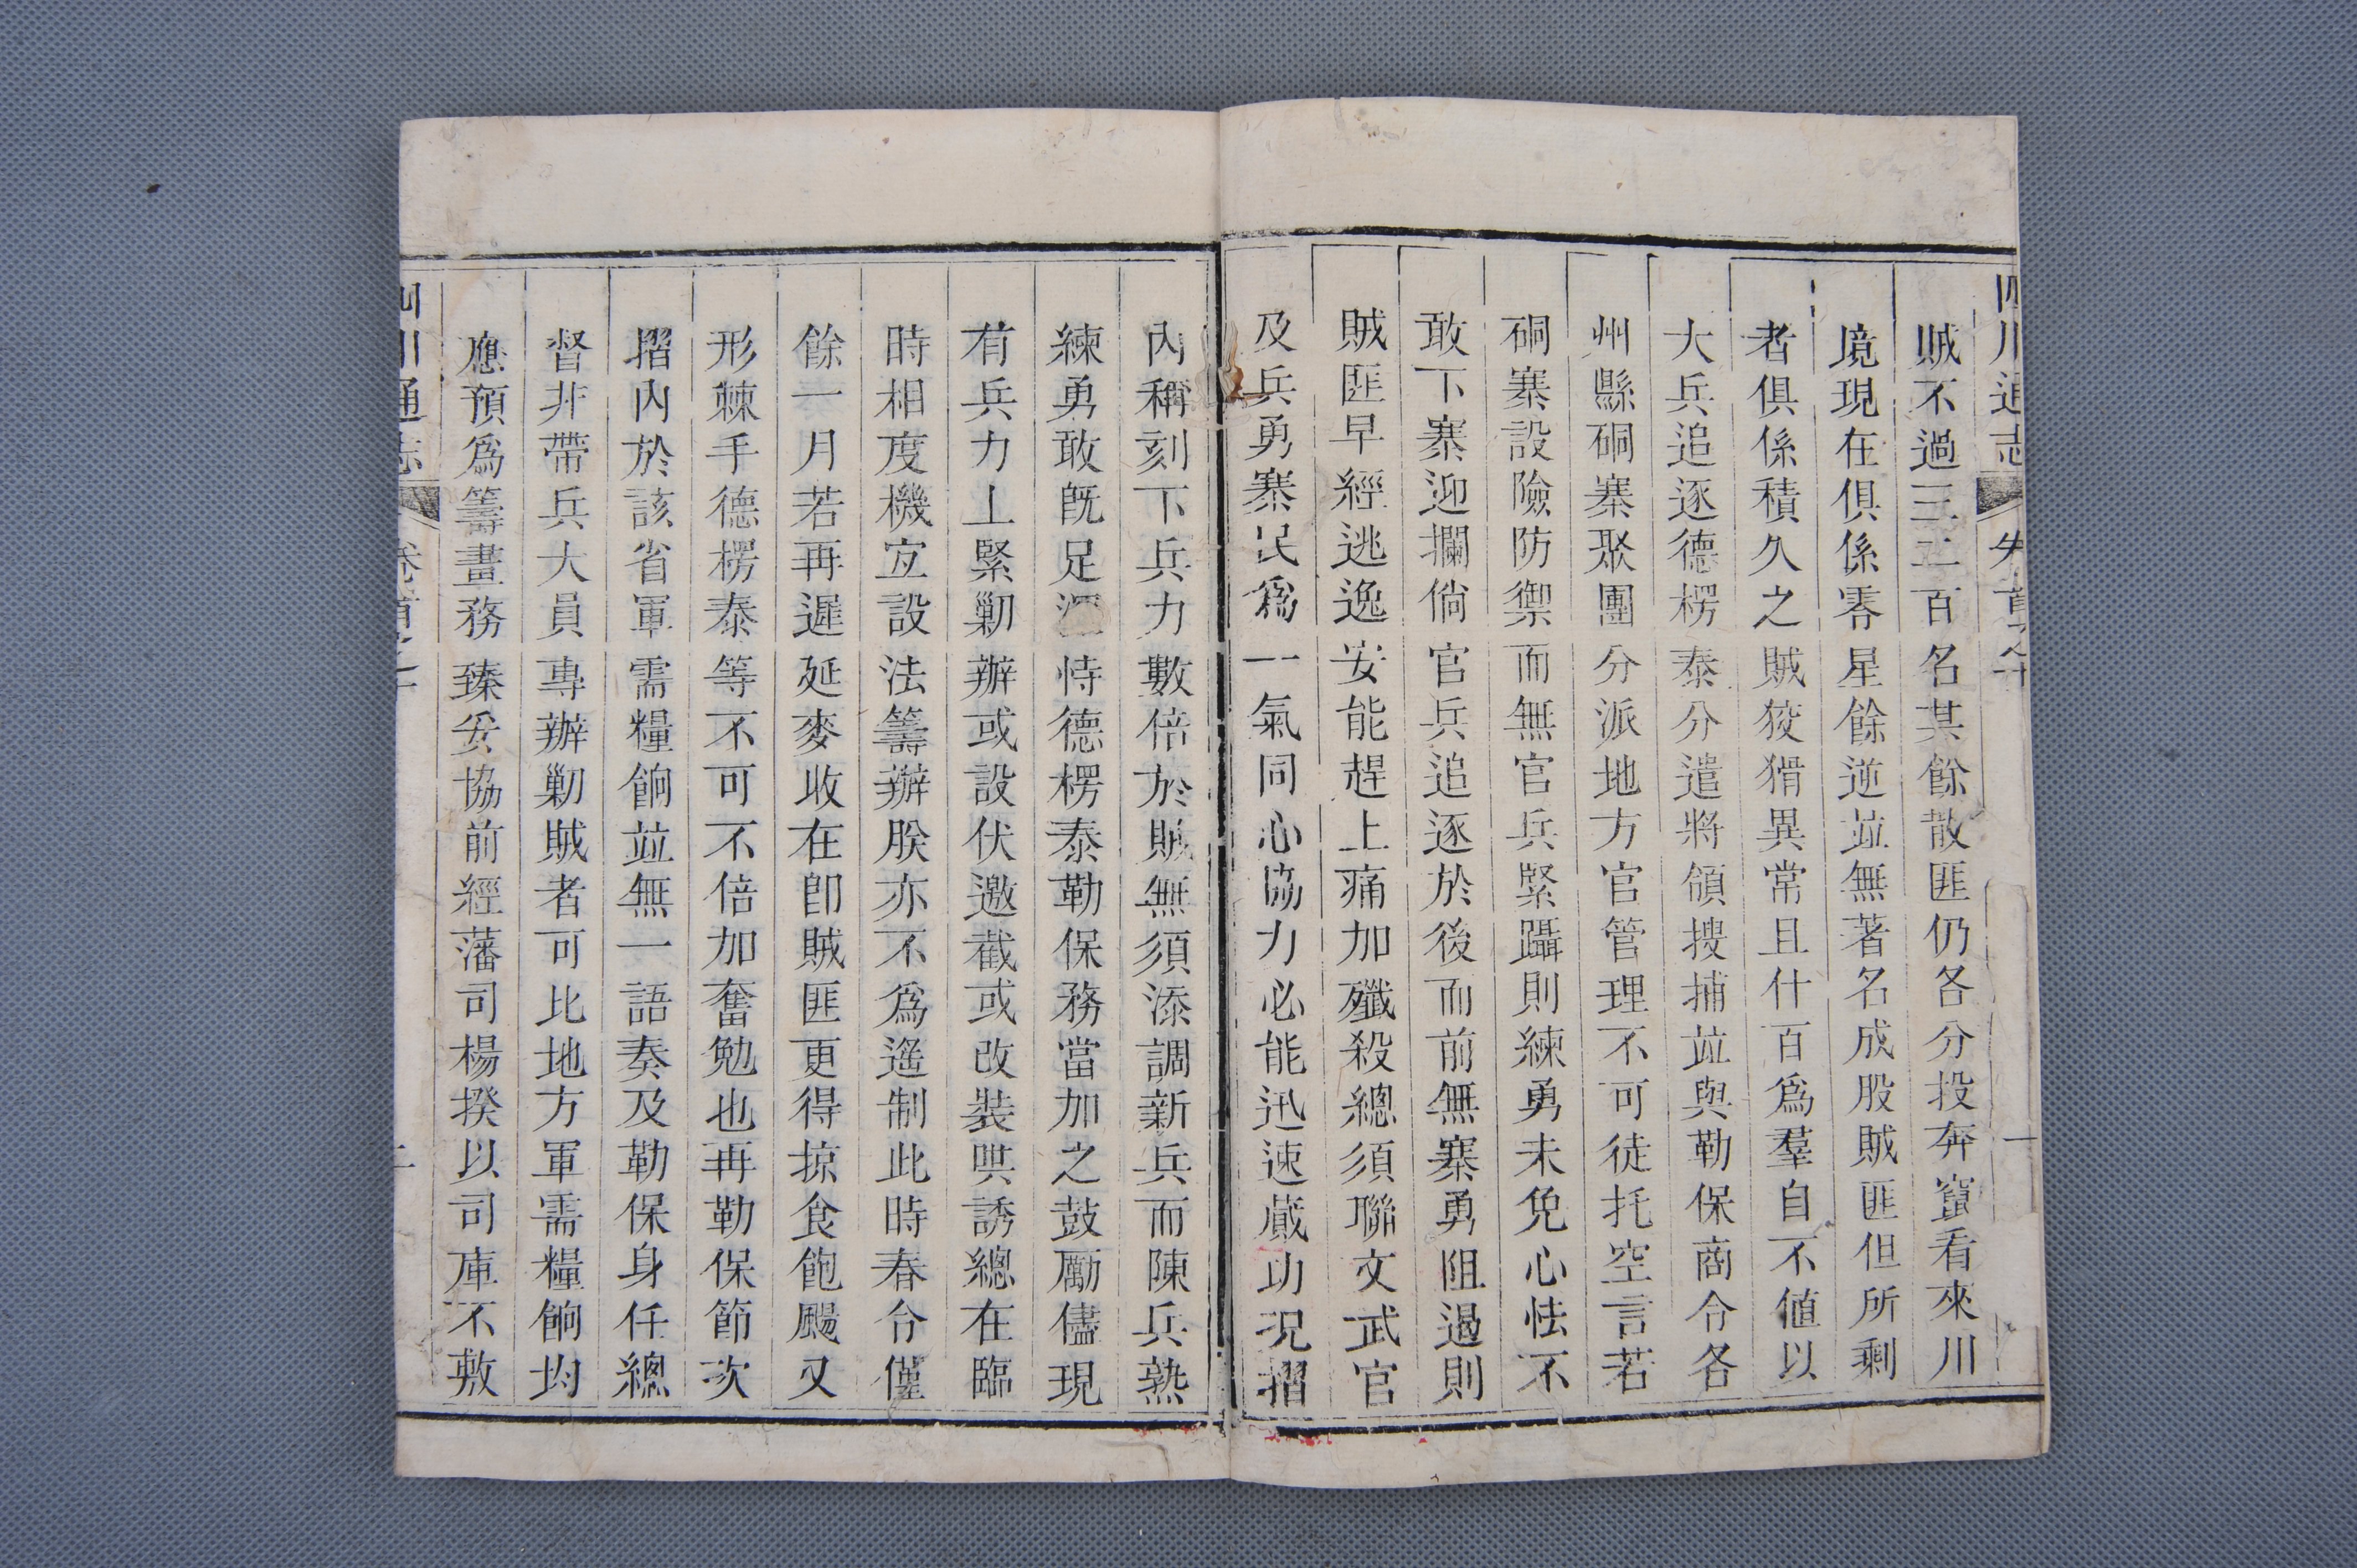 四川通志 卷首之十 一
賊不過三二百名其餘散匪仍各分投奔竄看來川
境現在俱係零星餘逆並無著名成股賊匪但所剩
者俱係積久之賊狡猾異常且什百爲羣自不値以
大兵追逐德楞泰分遣將領搜捕並與勒保商令各
州縣硐寨聚團分派地方官管理不可徒托空言若
硐寨設險防禦而無官兵緊躡則練勇未免心怯不
敢下寨迎攔倘官兵追逐於後而前無寨勇阻遏則
賊匪早經逃逸安能趕上痛加殲殺總須聯文武官
及兵勇寨民爲一氣同心協力必能迅速蕆功現摺
內稱刻下兵力數倍於賊無須添調新兵而陳兵熟
練勇敢旣足恃德楞泰勒保務當加之鼓勵儘現
有兵力上緊剿辦或設伏邀截或改裝哄誘總在臨
時相度機宜設法籌辦朕亦不爲遙制此時春令僅
餘一月若再遲延麥收在卽賊匪更得掠食飽颺又
形棘手德楞泰等不可不倍加奮勉也再勒保節次
摺內於該省軍需糧餉並無一語奏及勒保身任總
督非帶兵大員專辦剿賊者可比地方軍需糧餉均
應預爲籌畫務臻妥協前經藩司楊揆以司庫不敷
四川通志 卷首之十 二